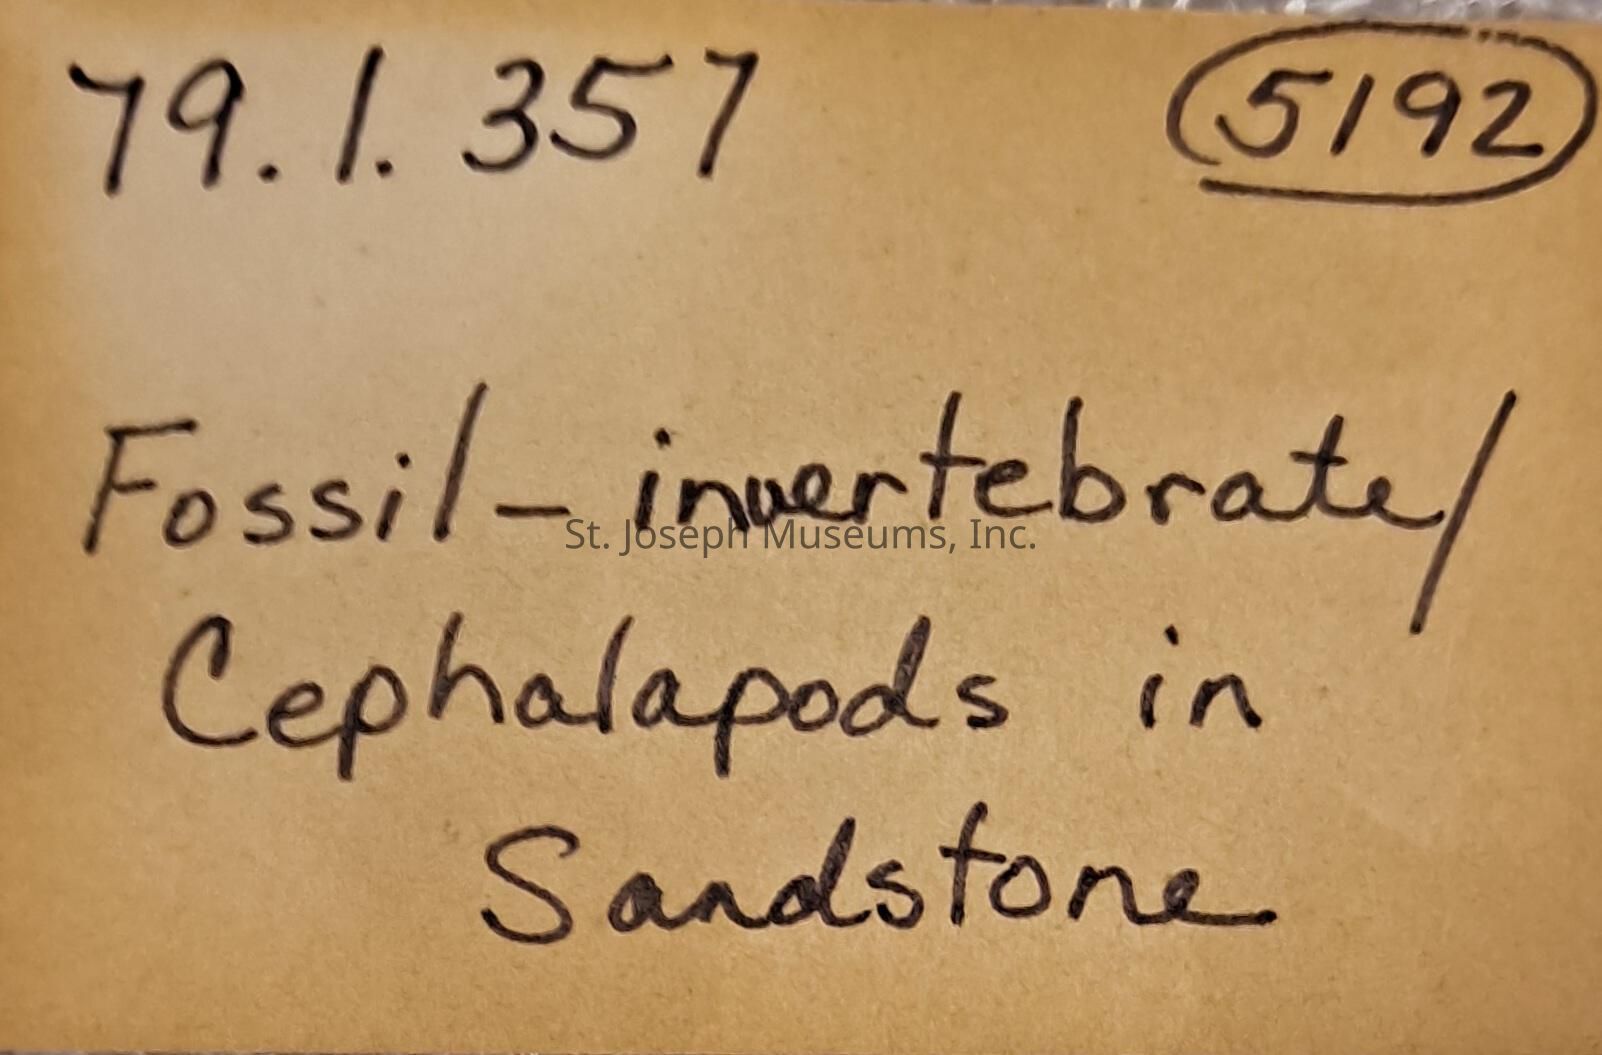 79.1.357 5192
Fossil - invertebrate/
St. Joseph Museums, Inc.
Cephalapods in
Sandstone